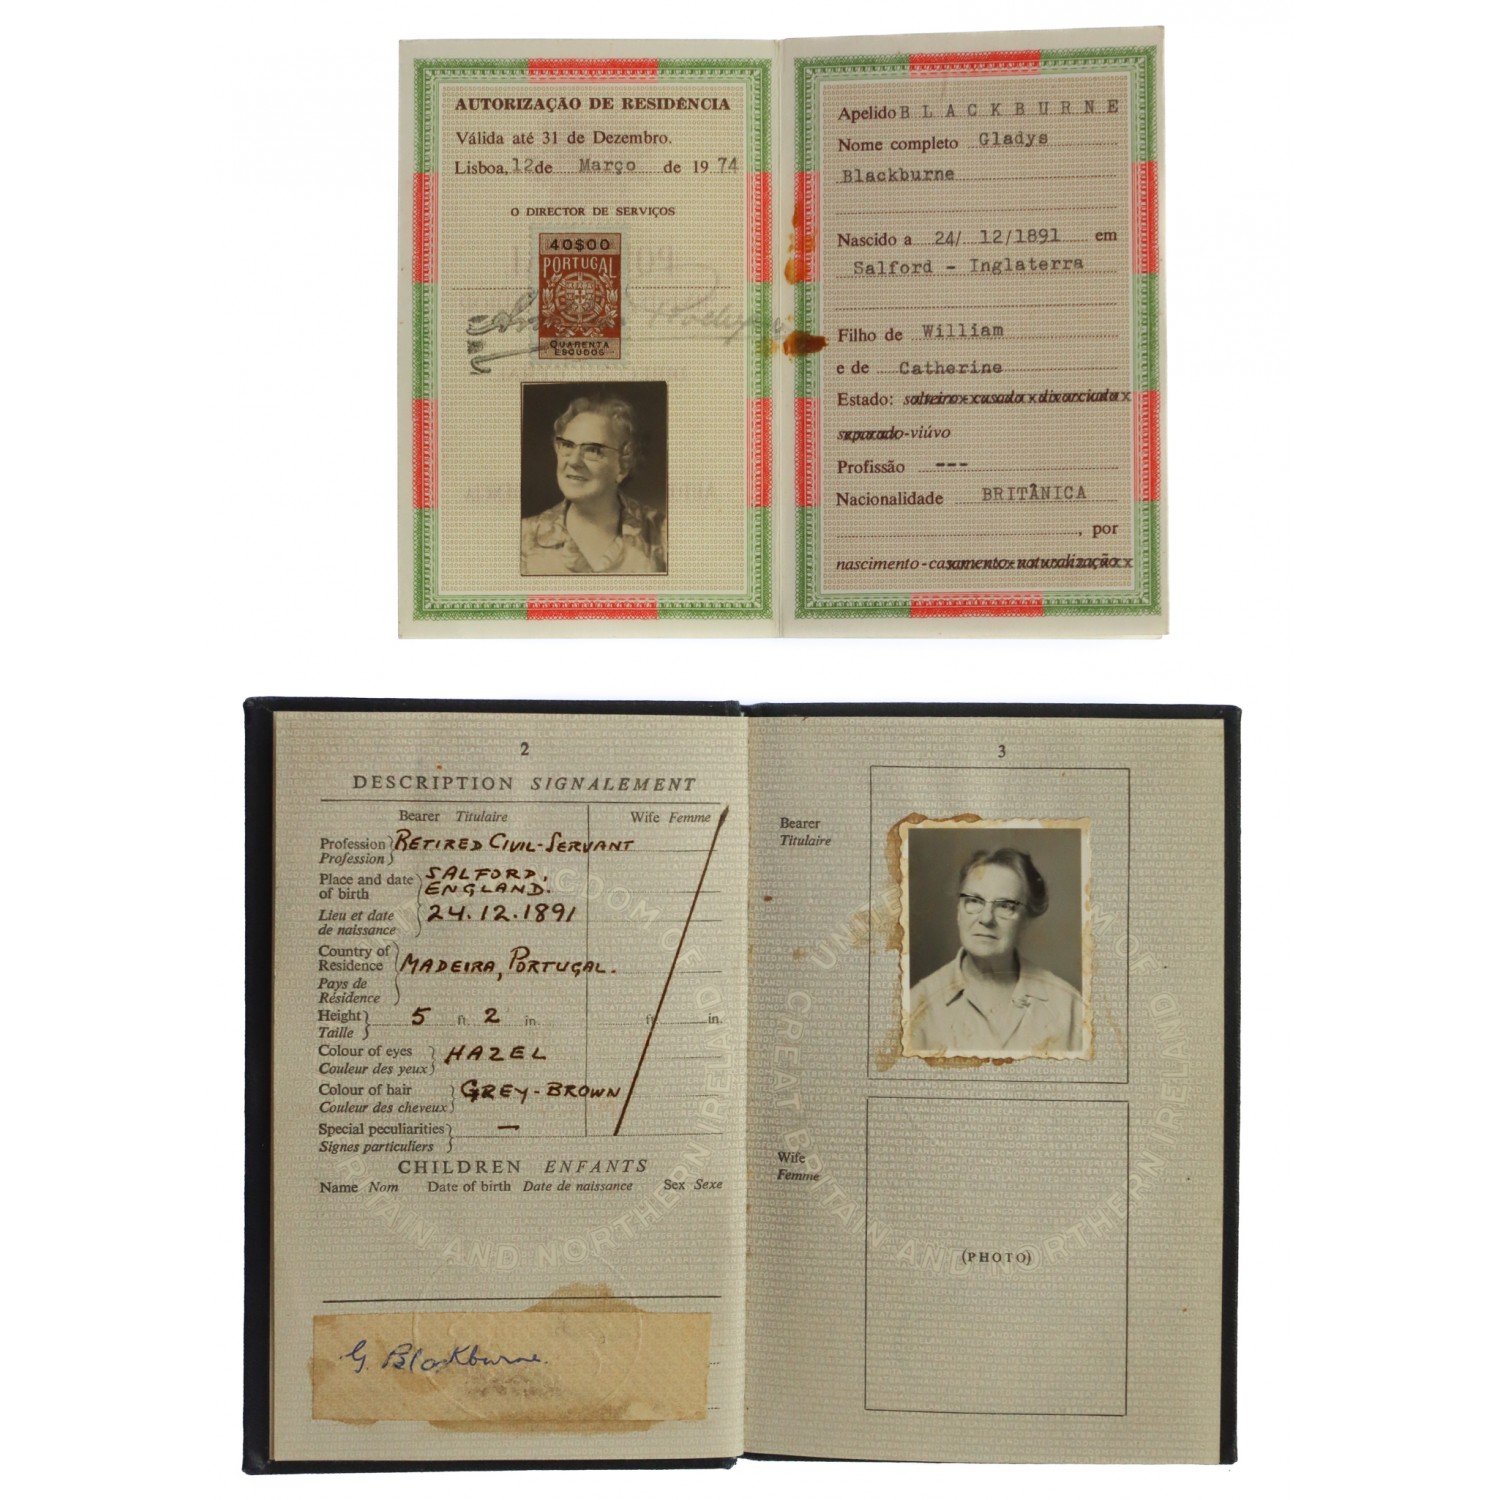 AUTORIZAÇÃO DE RESIDÊNCIA
Válida até 31 de Dezembro.
Lisboa, 12 de Março de 1974
O DIRECTOR DE SERVIÇOS
40$00
PORTUGAL
QUARENTA
ESCUDOS
Apelido BLACKBURNE
Nome completo Gladys
Blackburne
Nascido a 24/ 12/1891 em
Salford - Inglaterra
Filho de William
e de Catherine
Estado: solteiro-casado-divorciado
separado-viúvo
Profissão ---
Nacionalidade BRITÂNICA
, por
nascimento-casamento-naturalização
2
DESCRIPTION SIGNALEMENT
Bearer Titulaire Wife Femme
Profession RETIRED CIVIL-SERVANT
Profession
Place and date SALFORD,
of birth ENGLAND.
Lieu et date 24.12.1891
de naissance
Country of
Residence MADEIRA, PORTUGAL.
Pays de
Résidence
Height 5 ft. 2 in. ft. in.
Taille
Colour of eyes HAZEL
Couleur des yeux
Colour of hair GREY-BROWN
Couleur des cheveux
Special peculiarities —
Signes particuliers
CHILDREN ENFANTS
Name Nom Date of birth Date de naissance Sex Sexe
G. Blackburne.
3
Bearer
Titulaire
Wife
Femme
(PHOTO)
UNITED KINGDOM OF GREAT BRITAIN AND NORTHERN IRELAND